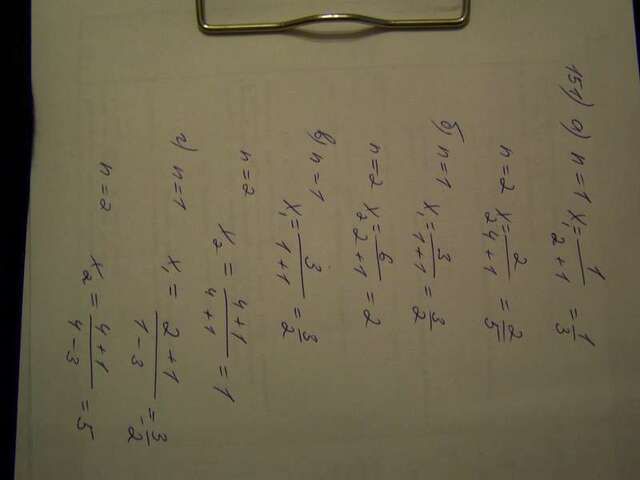 151) а) n=1 x₁ = 1/(2+1) = 1/3
n=2 x₂ = 2/(4+1) = 2/5
б) n=1 x₁ = 3/(1+1) = 3/2
n=2 x₂ = 6/(2+1) = 2
в) n=1 x₁ = 3/(1+1) = 3/2
n=2 x₂ = (4+1)/(4+1) = 1
г) n=1 x₁ = (2+1)/(1-3) = 3/-2
n=2 x₂ = (4+1)/(4-3) = 5